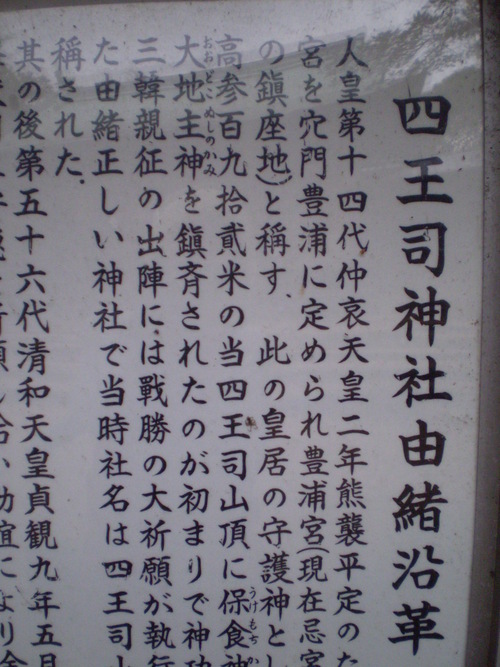 四王司神社由緒沿革
人皇第十四代仲哀天皇二年熊襲平定のた
宮を穴門豊浦に定められ豊浦宮(現在忌宮
の鎮座地)と稱す、此の皇居の守護神とし
高参百九拾貳米の当四王司山頂に保食神
大地主神を鎮斉されたのが初まりで神功
三韓親征の出陣には戰勝の大祈願が執行
た由緒正しい神社で当時社名は四王司
稱された、
其の後第五十六代清和天皇貞観九年五月